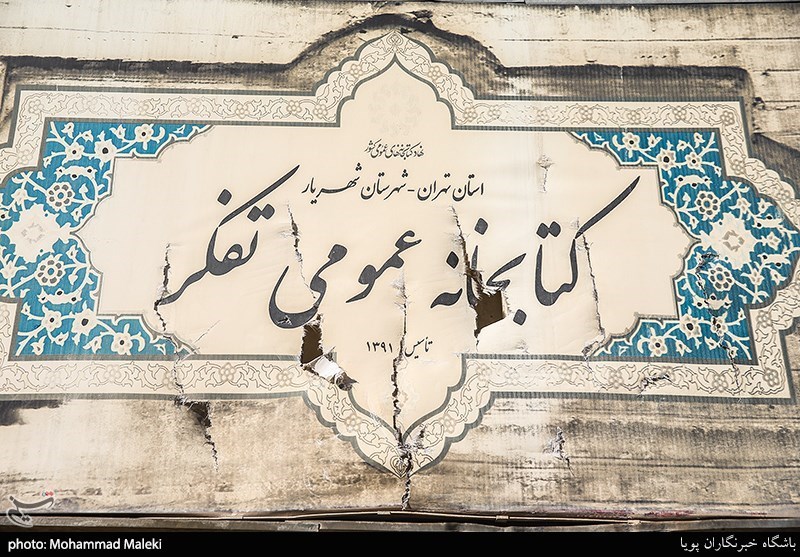 نهاد کتابخانه‌های عمومی کشور
استان تهران - شهرستان شهریار
کتابخانه عمومی تفکر
تاسیس ۱۳۹۱
photo: Mohammad Maleki
باشگاه خبرنگاران پویا